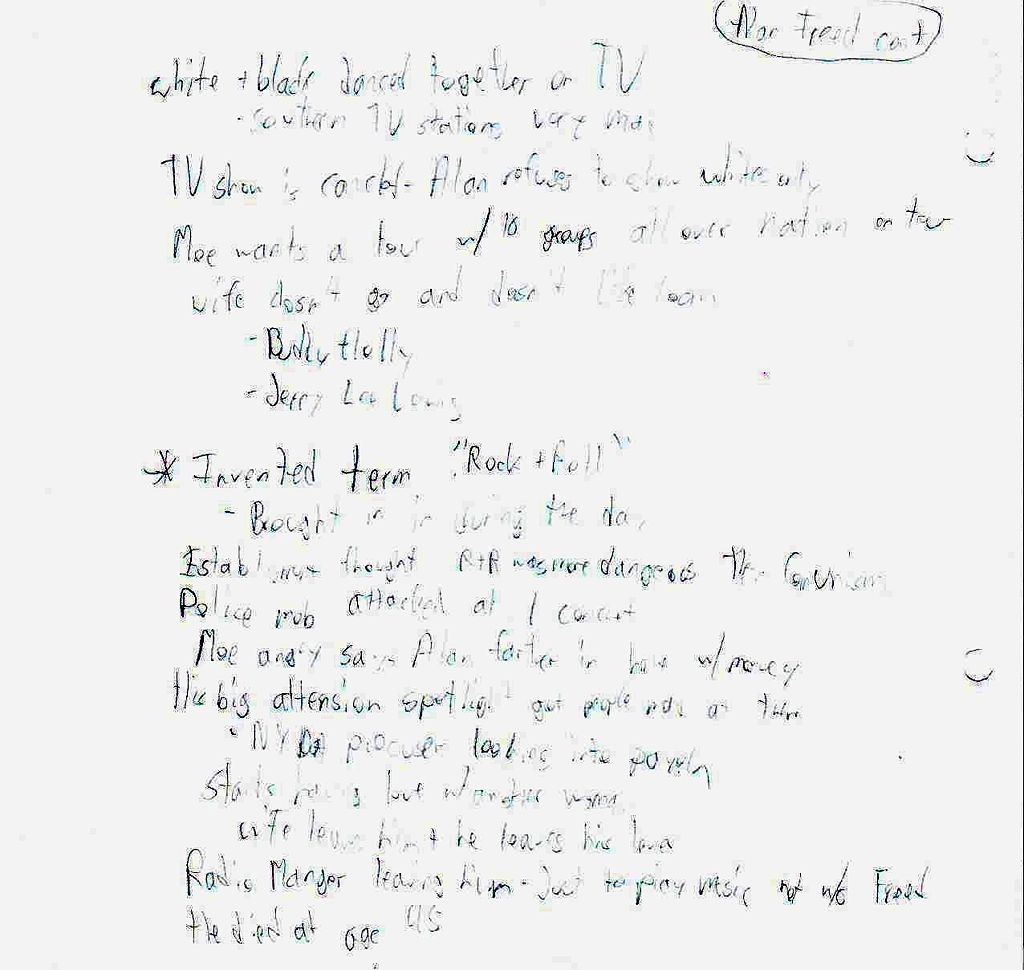 Alan Freed cont
white + black danced together on TV
- Southern TV stations very mad
TV show is cancled - Alan refuses to show whites only
Moe wants a tour w/ 10 groups all over nation on tour
wife dosn't go and dosn't like
- Buddy Holly
- Jerry Lee Lewis
* Invented term "Rock + Roll"
- Brought in in during the day
thought R+R was more dangerous
Police mob attacked at 1 concert
Moe angry says Alan farther in w/ money
His big attension spotlight got people mad at him
- NY DA looking into
Starts having love w/ another woman
wife leaves him + he leaves his lover
Radio Manger leaving him - Just to play music not w/o Freed
He died at age